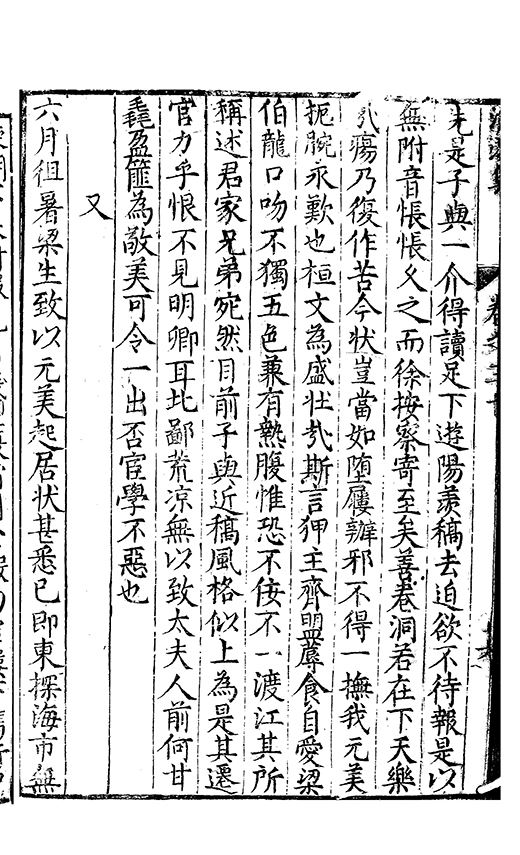 先是子與一介得讀足下遊陽羨稿去迫欲不待報是以
無附音悵悵久之而徐按察寄至矣善卷洞若在下天樂
瘍乃復作苦今狀豈當如墮屨辦邪不得一撫我元美
扼腕永歎也桓文為盛壯哉斯言狎主齊盟蓐食自愛梁
伯龍口吻不獨五色兼有熱腹惟恐不佞不一渡江其所
稱述君家兄弟宛然目前子與近稿風格似上為是其遷
官力乎恨不見明卿耳比鄙荒凉無以致太夫人前何甘
毳盈篚為敬美可令一出否宦學不惡也
又
六月徂暑梁生致以元美起居狀甚悉已即東探海市無